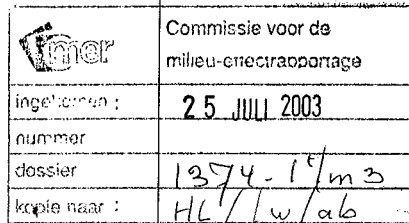 mer
Commissie voor de
milieu-effectrapportage
ingekomen : 25 JULI 2003
nummer
dossier 1374 - 1 t/m 3
kopie naar : HL / lw / ab